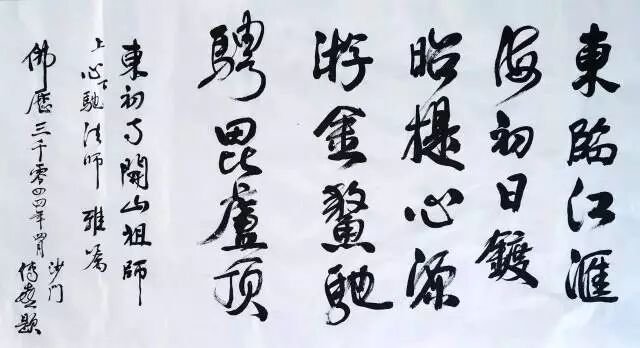 東臨江滙
海初日鍍
昭提心源
游金鰲馳
騁毘盧頂
東初寺開山祖師
上心下馳法師雅属
佛曆三千零四四年四月
沙门
傳喜題